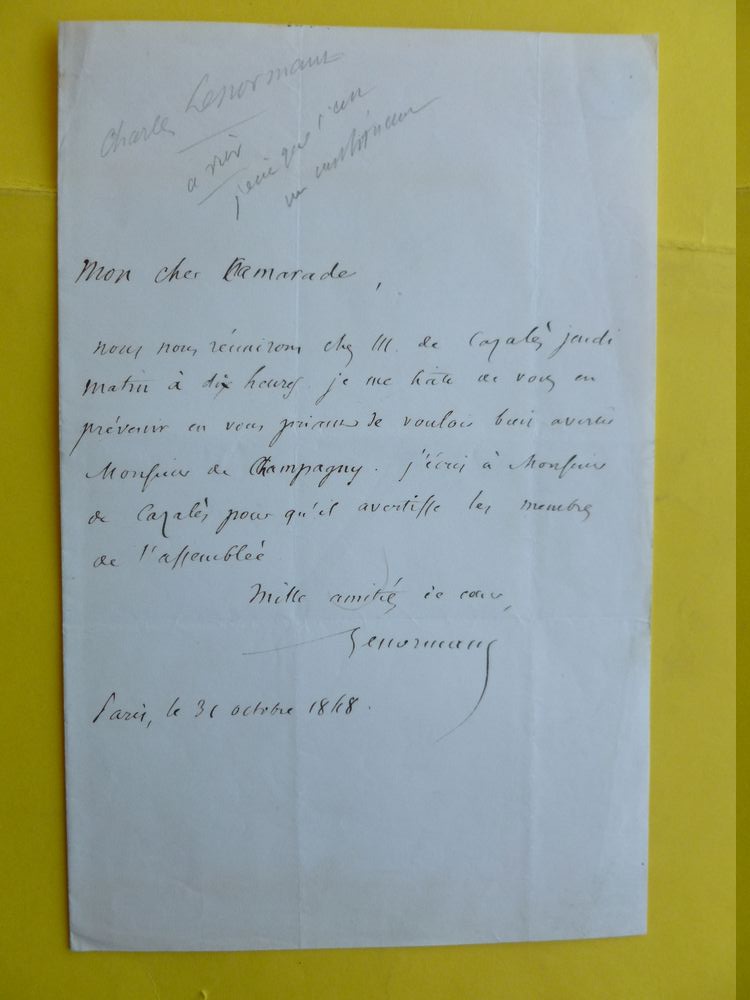 Charles Lenormant
a voir
j'ecris que c'est
un
Mon cher Camarade,
nous nous réunirons chez M. de Cazalès jeudi
matin à dix heures. je me hâte de vous en
prévenir en vous priant de vouloir bien avertir
Monsieur de Champagny. j'écris à Monsieur
de Cazalès pour qu'il avertisse les membres
de l'assemblée.
Mille amitiés de cœur,
Lenormant
Paris, le 31 octobre 1848.